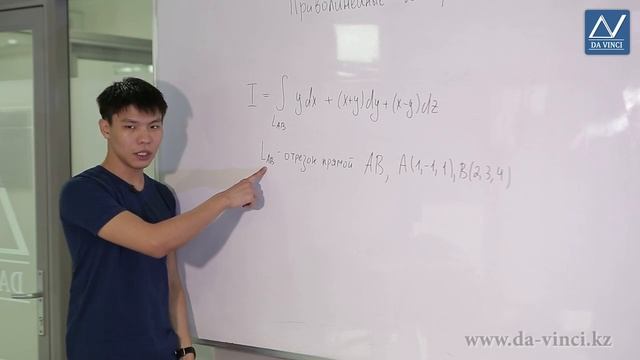 Криволинейные
DA VINCI
I = ∫ ydx + (x+y)dy + (x-y)dz
L_AB
L_AB - отрезок прямой AB, A(1,-1,1), B(2,3,4)
www.da-vinci.kz